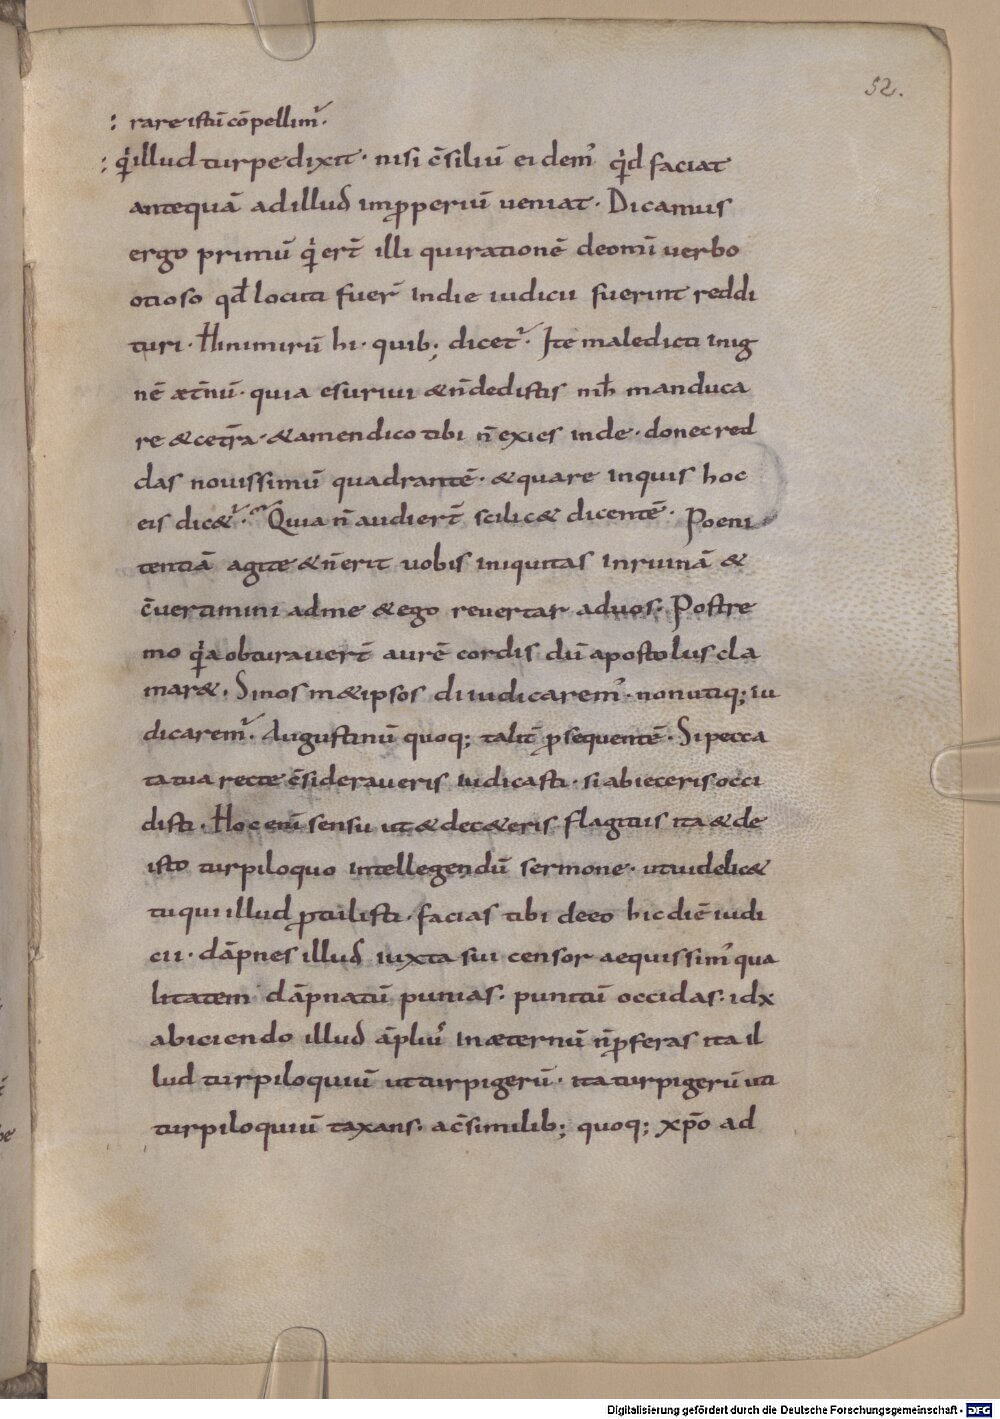 52.
: rare istū cōpellim᷑·
: qͥ illud turpe dixit· nisi c̄siliū ei dem᾽ qͥd faciat
antequā ad illud imꝓperiū ueniat· Dicamus
ergo primū qͥ er̄t illi qui rationē de omī uerbo
otioso qđ locuti fuer̄ In die iudicii fuerint reddi
turi· Hi nimirū hi· quib; dicet᷑· Ite maledicti In ig
nē æt̄nū· quia esuriui & n̄ dedistis mh̄ manduca
re & cet̄ra· & amen dico tibi n̄ exies inde· donec red
das nouissimū quadrantē· & quare inquis hoc
eis dic&᷑· Quia n̄ audier̄t scilic& dicentē· Poeni
tentiā agite & n̄ erit uobis iniquitas In ruinā &
c̄uertimini ad me & ego reuertar ad uos· Postre
mo qͥa obturauer̄t aurē cordis dū apostolus cla
mar&· Si nosm&ipsos diiudicarem᾽· non utiq; iu
dicarem᷑· Augustinū quoq; talit̄ ꝓsequentē· Si pecca
ta tua recte c̄sideraueris iudicasti· si abieceris occi
disti· Hoc eni sensu ut & de c&eris flagitiis ita & de
isto turpiloquo intellegendū sermone· ut uidelic&
tu qui illud ꝓtulisti· facias tibi de eo hic diē iudi
cii· dāpnes illud iuxta sui censor aequissim᾽ qua
litatem dāpnatū punias· punitū occidas· idx
abiciendo illud āpliu᾽ In æternū n̄ ꝓferas ita il
lud turpiloquiū ut turpigerū· ita turpigerū uti
turpiloquiū taxans· a c̄similib; quoq; xp̄o ad
Digitalisierung gefördert durch die Deutsche Forschungsgemeinschaft - DFG